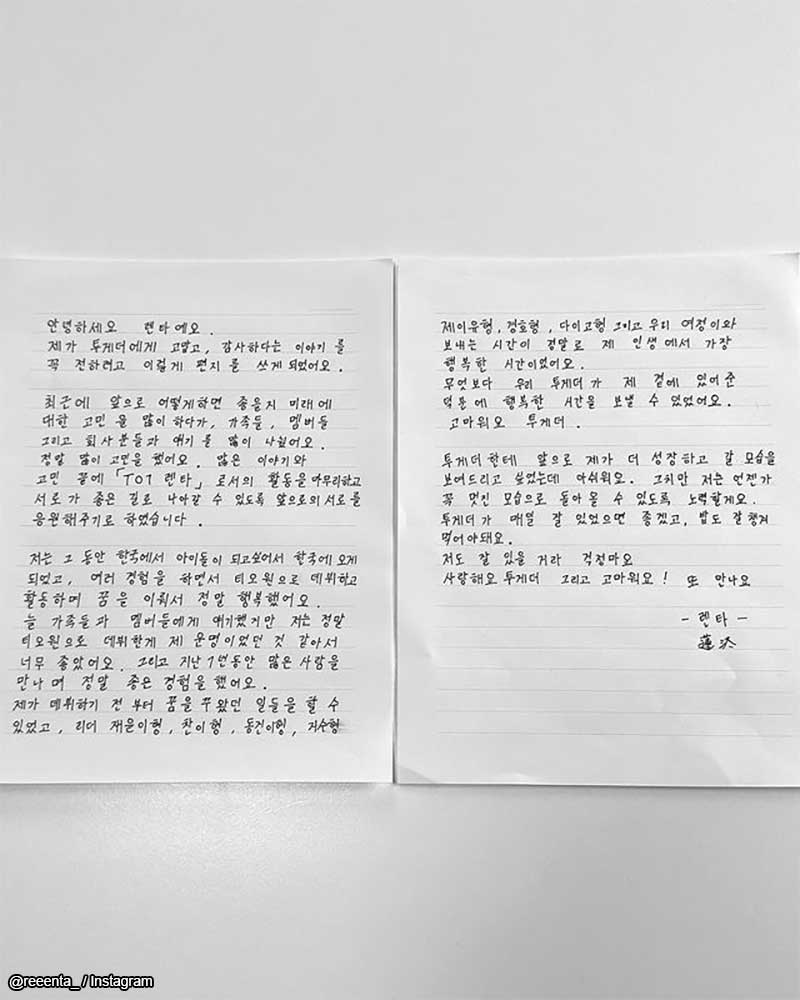 안녕하세요 렌타예요.
제가 투게더에게 고맙고, 감사하다는 이야기를
꼭 전하려고 이렇게 편지를 쓰게 되었어요.
최근에 앞으로 어떻게하면 좋을지 미래에
대한 고민을 많이 하다가, 가족들, 멤버들
그리고 회사분들과 얘기를 많이 나눴어요.
정말 많이 고민을 했어요. 많은 이야기와
고민 끝에 「TO1 렌타」로서의 활동을 마무리하고
서로가 좋은 길로 나아갈 수 있도록 앞으로의 서로를
응원해주기로 하였습니다.
저는 그 동안 한국에서 아이돌이 되고싶어서 한국에 오게
되었고, 여러 경험을 하면서 티오원으로 데뷔하고
활동하며 꿈을 이뤄서 정말 행복했어요.
늘 가족들과 멤버들에게 얘기했지만 저는 정말
티오원으로 데뷔한게 제 운명이었던 것 같아서
너무 좋았어요. 그리고 지난 1년동안 많은 사람을
만나며 정말 좋은 경험을 했어요.
제가 데뷔하기 전부터 꿈을 꾸왔던 일들을 할 수
있었고, 리더 재윤이형, 찬이형, 동건이형, 지수형
제이유형, 경호형, 다이고형 그리고 우리 여정이와
보내는 시간이 정말로 제 인생에서 가장
행복한 시간이었어요.
무엇보다 우리 투게더가 제 곁에 있어준
덕분에 행복한 시간을 보낼 수 있었어요.
고마워요 투게더.
투게더한테 앞으로 제가 더 성장하고 갈 모습을
보여드리고 싶었는데 아쉬워요. 그치만 저는 언젠가
꼭 멋진 모습으로 돌아올 수 있도록 노력할게요.
투게더가 매일 잘 있었으면 좋겠고, 밥도 잘 챙겨
먹어야돼요.
저도 잘 있을 거라 걱정마요
사랑해요 투게더 그리고 고마워요! 또 만나요
- 렌타 -
蓮汰
@reeenta_ / Instagram